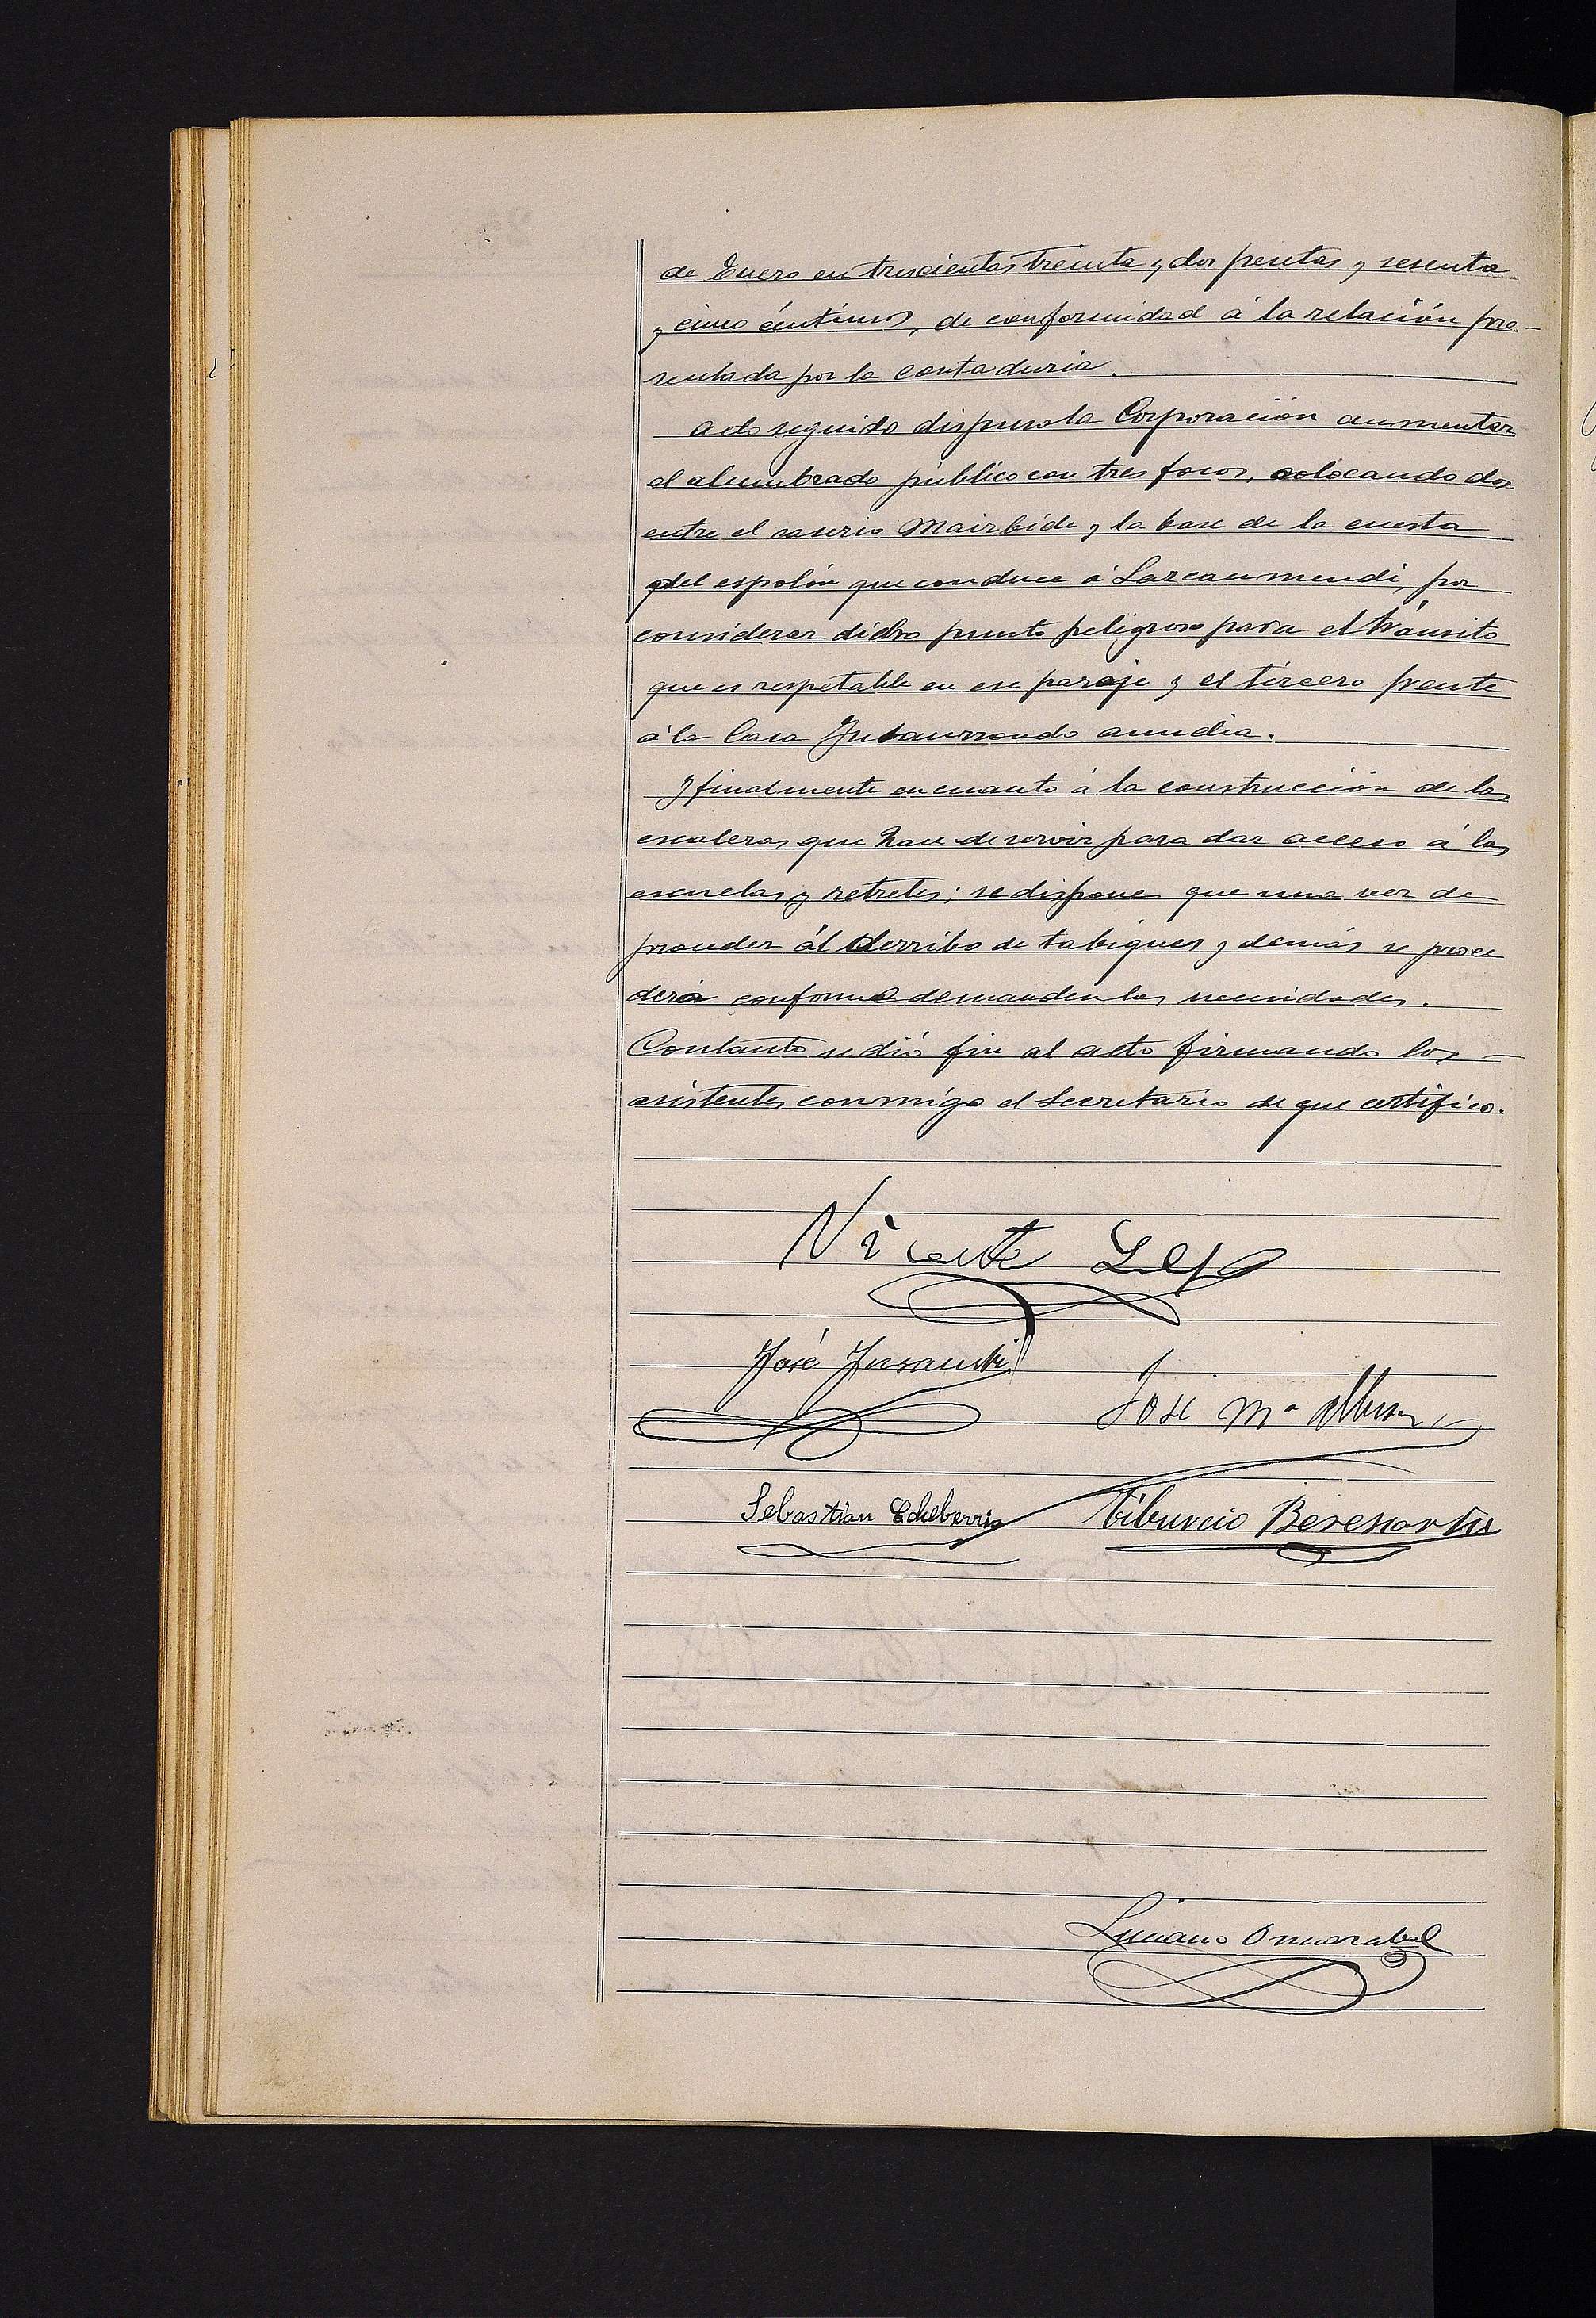 de Enero en trescientas treinta y dos pesetas y sesenta
y cinco céntimos, de conformidad á la relación pre-
sentada por la contaduria.
Acto seguido dispuso la Corporación aumentar
el alumbrado público con tres focos, colocando dos
entre el caserio Mairbide y la base de la cuesta
del espolón que conduce á Lazcaumendi, por
considerar dicho punto peligroso para el tránsito
que es respetable en ese paraje y el tércero frente
á la Casa Insaurrondo aundia.
Y finalmente en cuanto á la construcción de las
escaleras que han de servir para dar acceso á las
escuelas y retretes; se dispone que una vez de
proceder ál derribo de tabiques y demás se proce
derá conforme demanden las necesidades.
Contanto se dió fin al acto firmando los
asistentes conmigo el Secretario de que certifico.
Vicente
José Insausti
José Mª
Sebastian Echeberria Tiburcio Beresiartu
Luciano